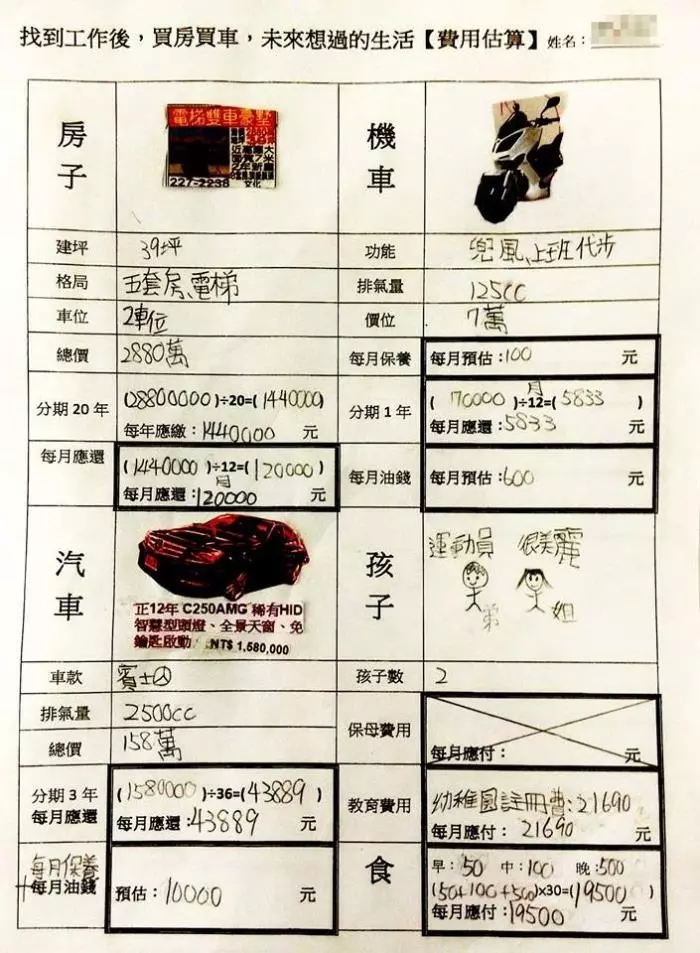 找到工作後，買房買車，未來想過的生活【費用估算】 姓名：
房子
電梯雙車豪墅
227-2238
文化
機車
建坪 39坪
功能 兜風、上班代步
格局 五套房、電梯
排氣量 125cc
車位 2車位
價位 7萬
總價 2880萬
每月保養 每月預估：100 元
分期 20 年 (28800000)÷20=(1440000)
每年應繳：1440000 元
分期 1 年 (70000)÷12=(5833)
月
每月應還：5833 元
每月應還 (1440000)÷12=(120000)
月
每月應還：120000 元
每月油錢 每月預估：600 元
汽車
正12年 C250AMG 稀有HID
智慧型頭燈、全景天窗、免
鑰匙啟動 NT$ 1,580,000
孩子
運動員 很美麗
弟 姐
車款 賓士
孩子數 2
排氣量 2500cc
保母費用 每月應付： 元
總價 158萬
分期 3 年
每月應還
(1580000)÷36=(43889)
每月應還：43889 元
教育費用 幼稚園註冊費：21690
每月應付：21690 元
每月保養
+每月油錢
預估：10000 元
食
早：50 中：100 晚：500
(50+100+500)×30=(19500)
每月應付：19500 元